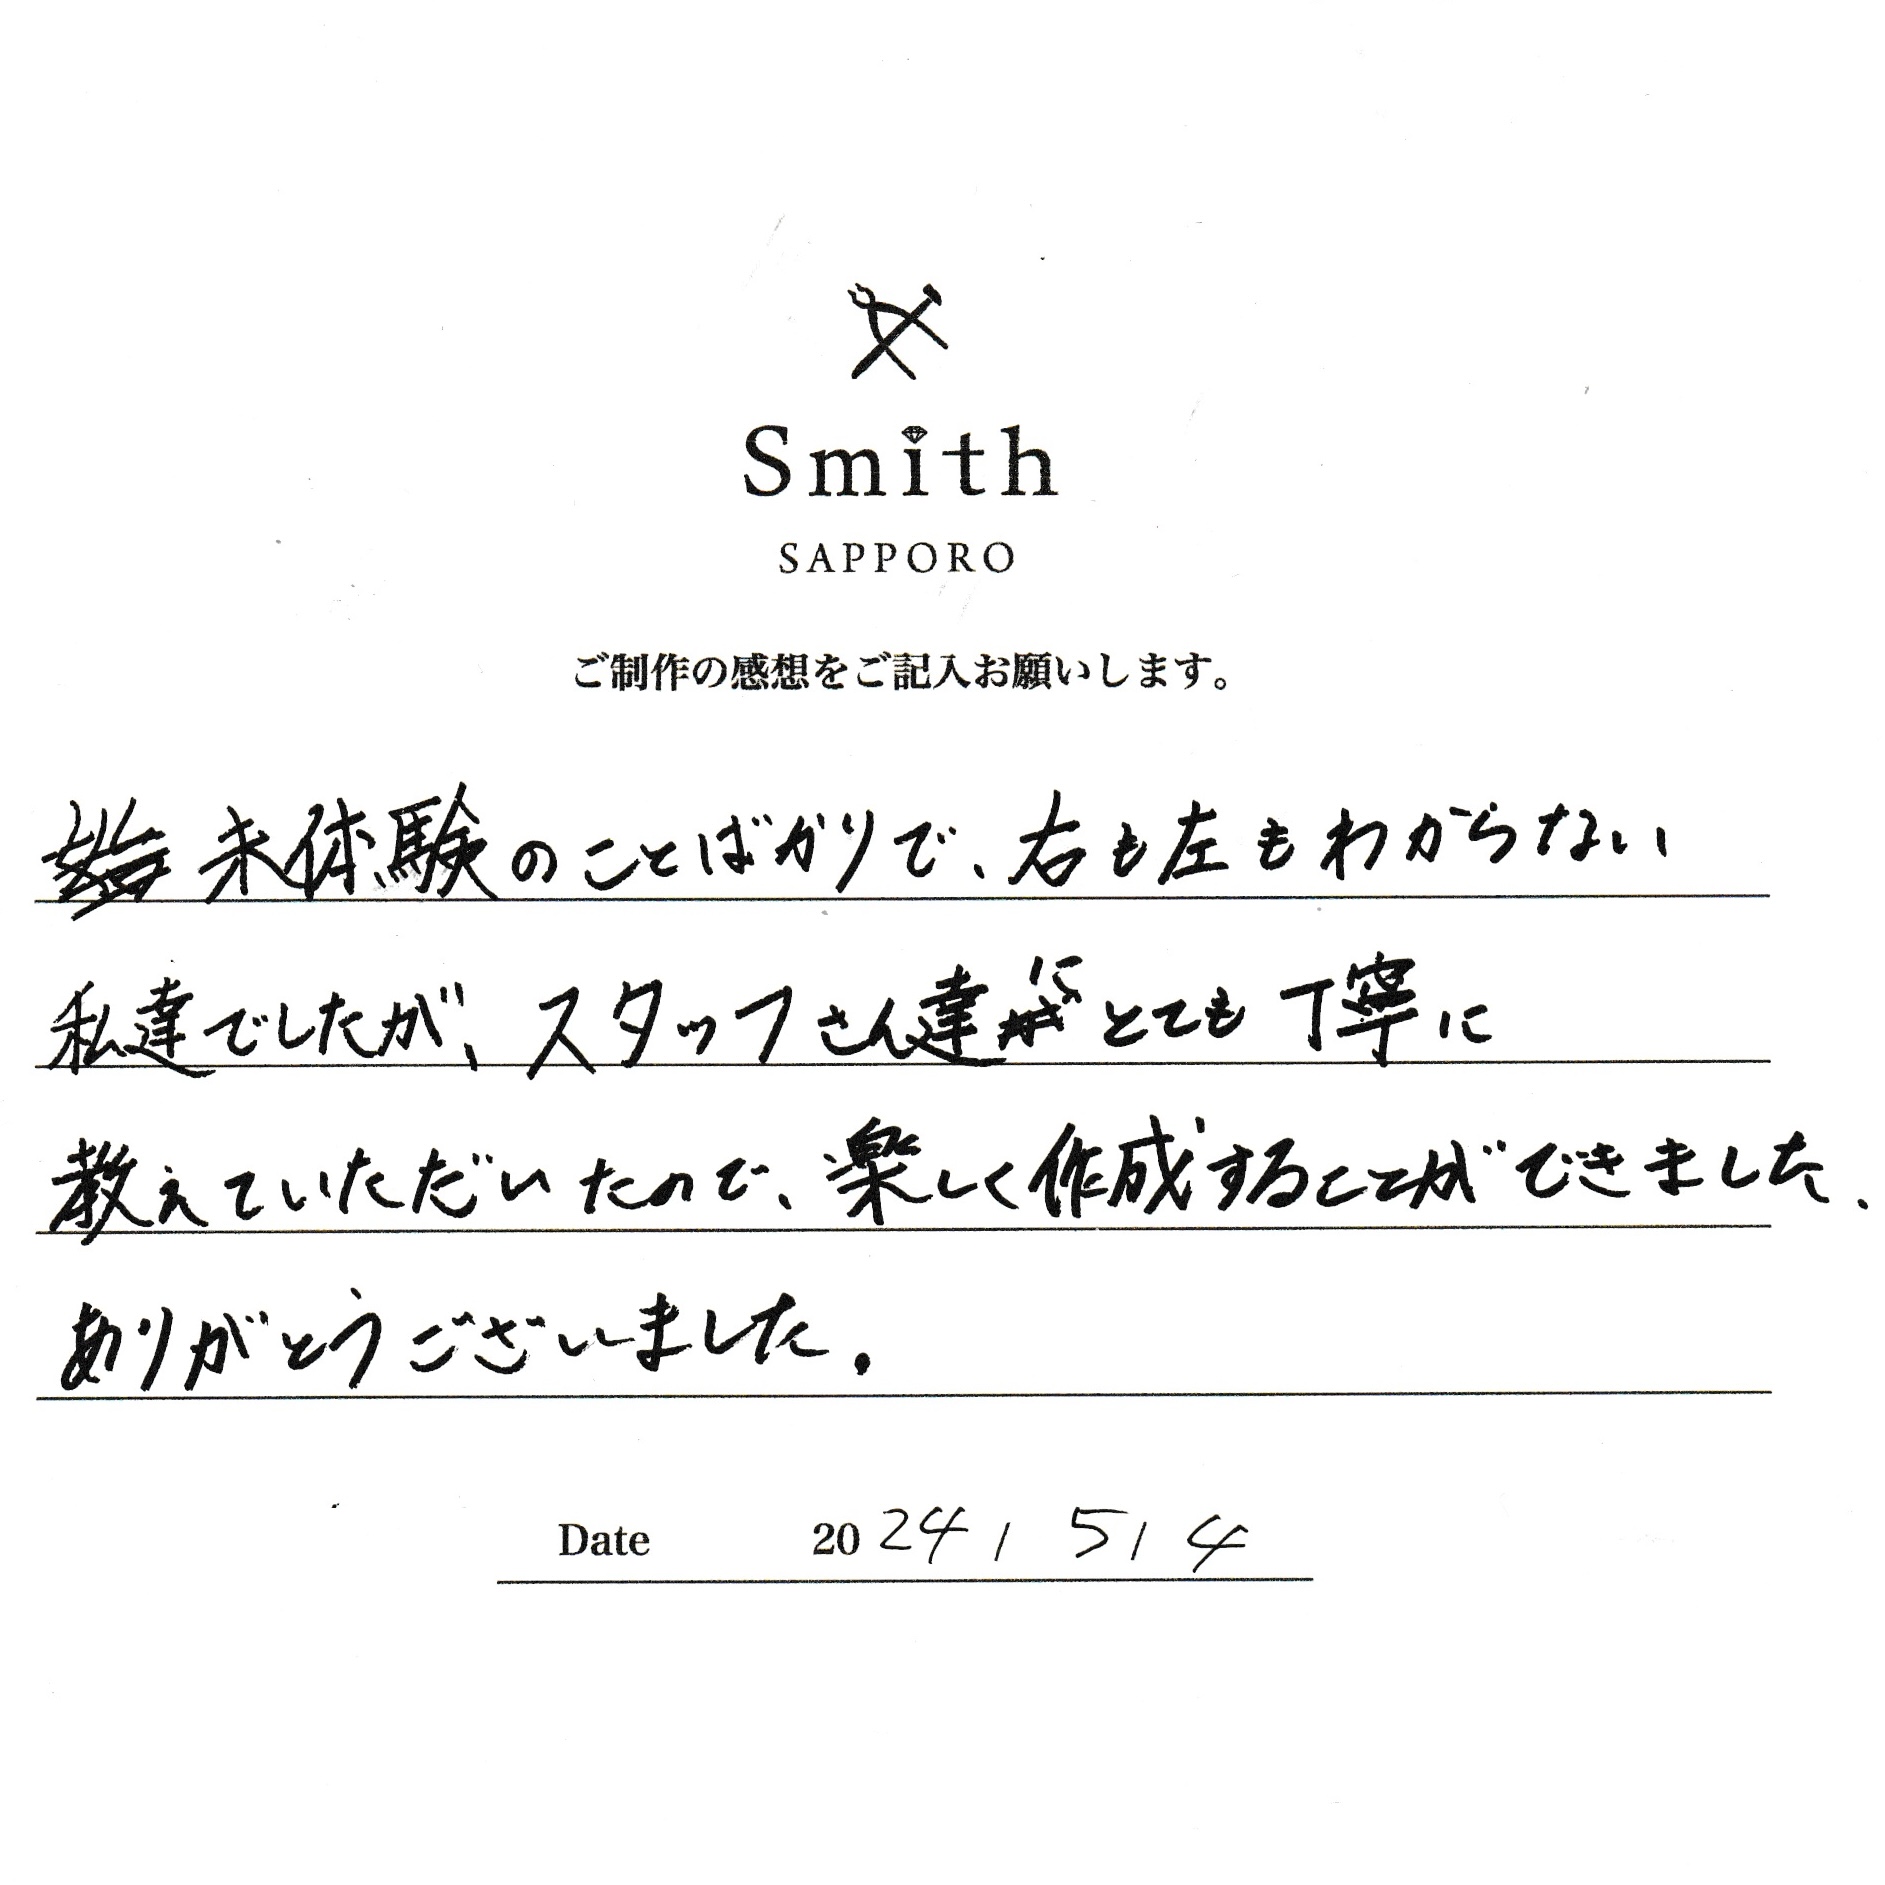 Smith
SAPPORO
ご制作の感想をご記入お願いします。
未体験のことばかりで、右も左もわからない
私達でしたが、スタッフさん達にとても丁寧に
教えていただいたので、楽しく作成することができました.
ありがとうございました.
Date 2024/5/4